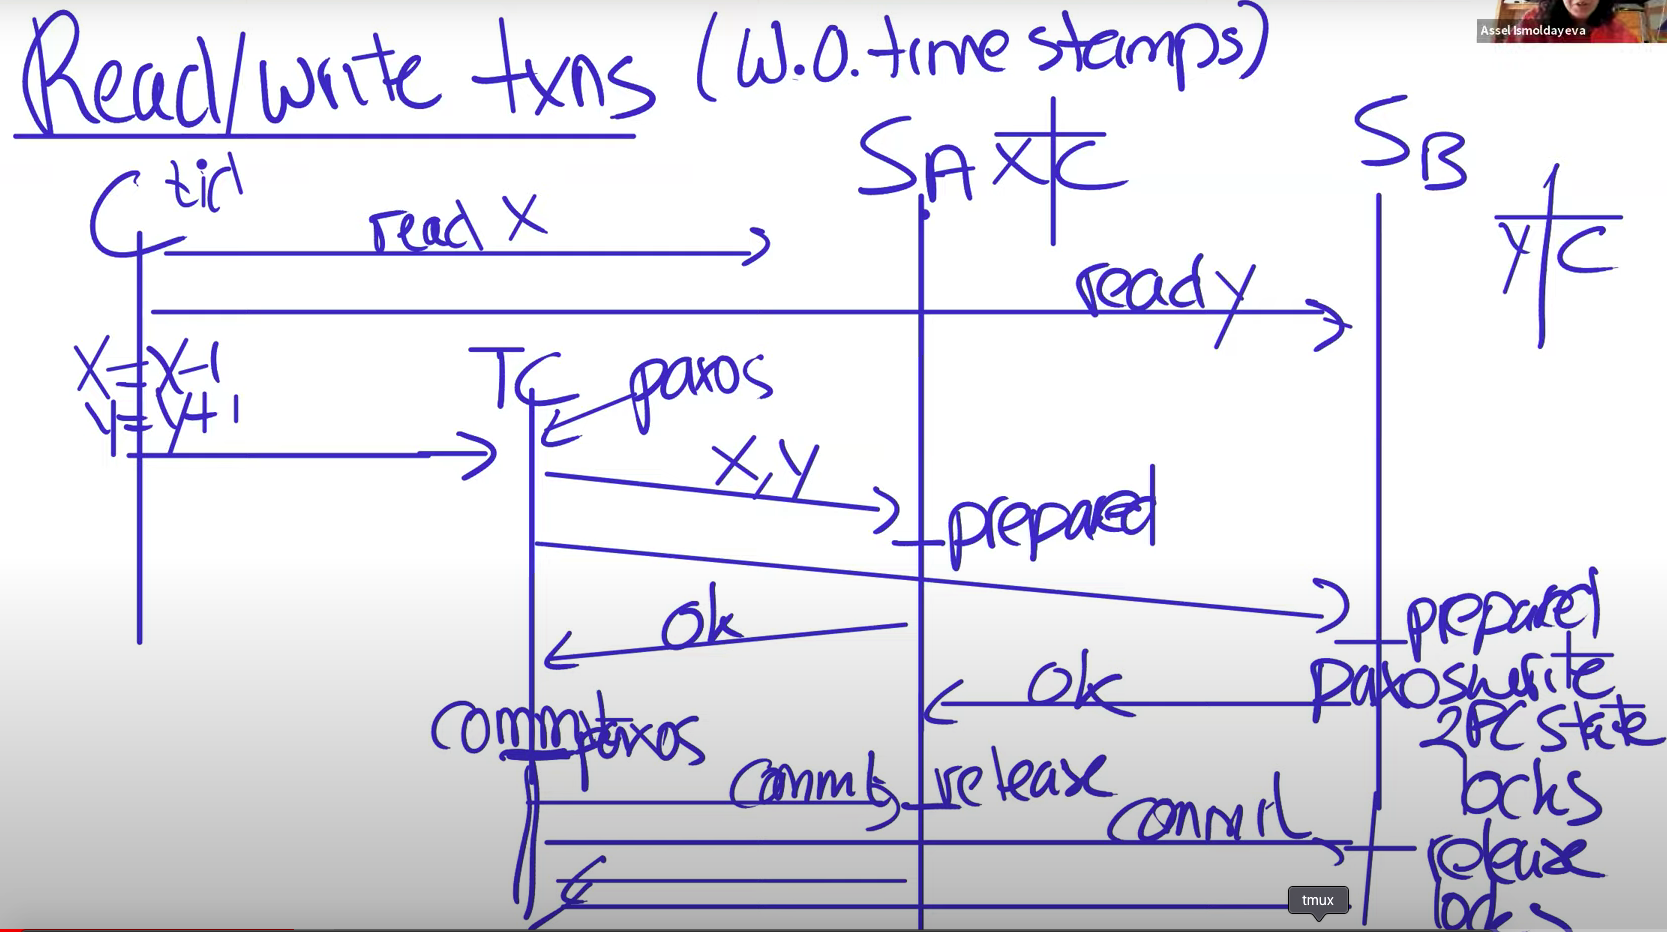 Read/write txns (W.O. timestamps)
Assel Ismoldayeva
C tid
SA X C
SB
Y C
read X
read y
X=X-1
y=y+1
TC
paxos
X,y
prepared
prepared
ok
ok
paxos write
2PC state
locks
commit
paxos
commit
release
commit
release
locks
tmux